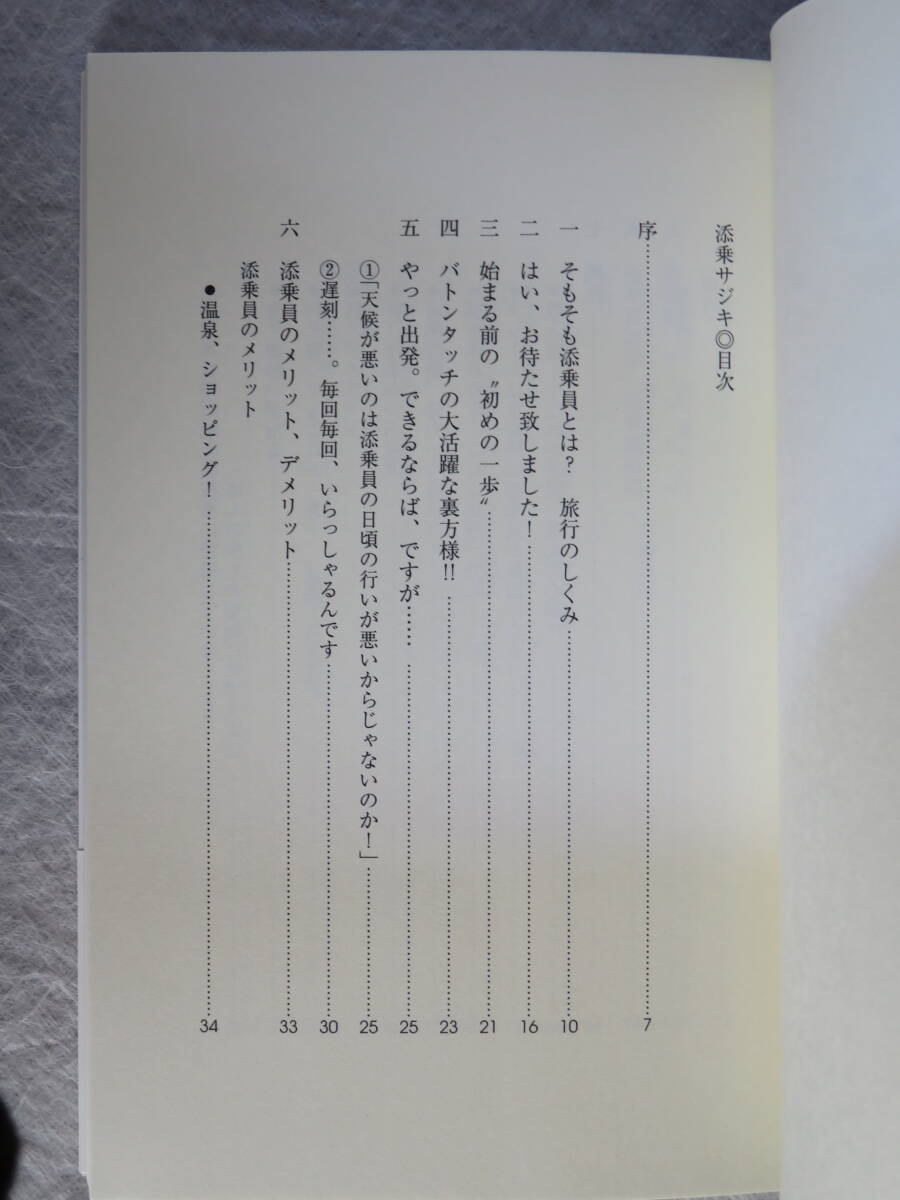 添乗サジキ◎目次
序……………………7
一 そもそも添乗員とは? 旅行のしくみ……………………10
二 はい、お待たせ致しました!……………………16
三 始まる前の〝初めの一歩〟……………………21
四 バトンタッチの大活躍な裏方様!!……………………23
五 やっと出発。できるならば、ですが…… ……………………25
①「天候が悪いのは添乗員の日頃の行いが悪いからじゃないのか!」……………………25
②遅刻……。毎回毎回、いらっしゃるんです……………………30
六 添乗員のメリット、デメリット……………………33
添乗員のメリット
●温泉、ショッピング!……………………34